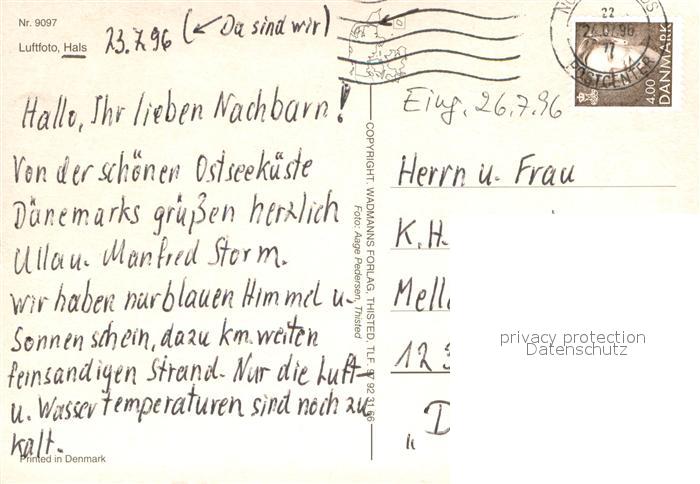 Nr. 9097
Luftfoto, Hals
23.7.96 (← Da sind wir)
Hallo, Ihr lieben Nachbarn!
Von der schönen Ostseeküste
Dänemarks grüßen herzlich
Ulla u. Manfred Storm.
wir haben nur blauen Himmel u.
Sonnenschein, dazu km.weiten
feinsandigen Strand. Nur die Luft-
u. Wassertemperaturen sind noch zu
kalt.
Printed in Denmark
COPYRIGHT: WADMANNS FORLAG, THISTED, TLF. 97 92 31 66
Foto: Aage Pedersen, Thisted
22
17
POSTCENTER
4.00
DANMARK
Eing. 26.7.96
Herrn u. Frau
K.H.
12
"D
privacy protection
Datenschutz